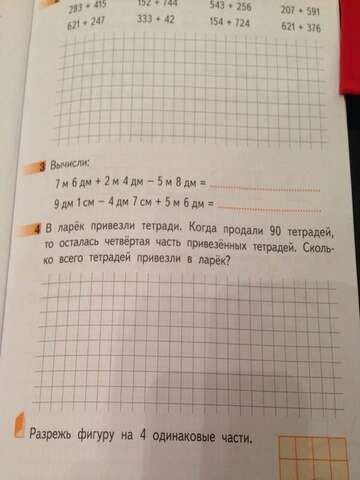 283 + 415 152 + 744 543 + 256 207 + 591
621 + 247 333 + 42 154 + 724 621 + 376
3 Вычисли:
7 м 6 дм + 2 м 4 дм − 5 м 8 дм =
9 дм 1 см − 4 дм 7 см + 5 м 6 дм =
4 В ларёк привезли тетради. Когда продали 90 тетрадей,
то осталась четвёртая часть привезённых тетрадей. Сколь-
ко всего тетрадей привезли в ларёк?
Разрежь фигуру на 4 одинаковые части.